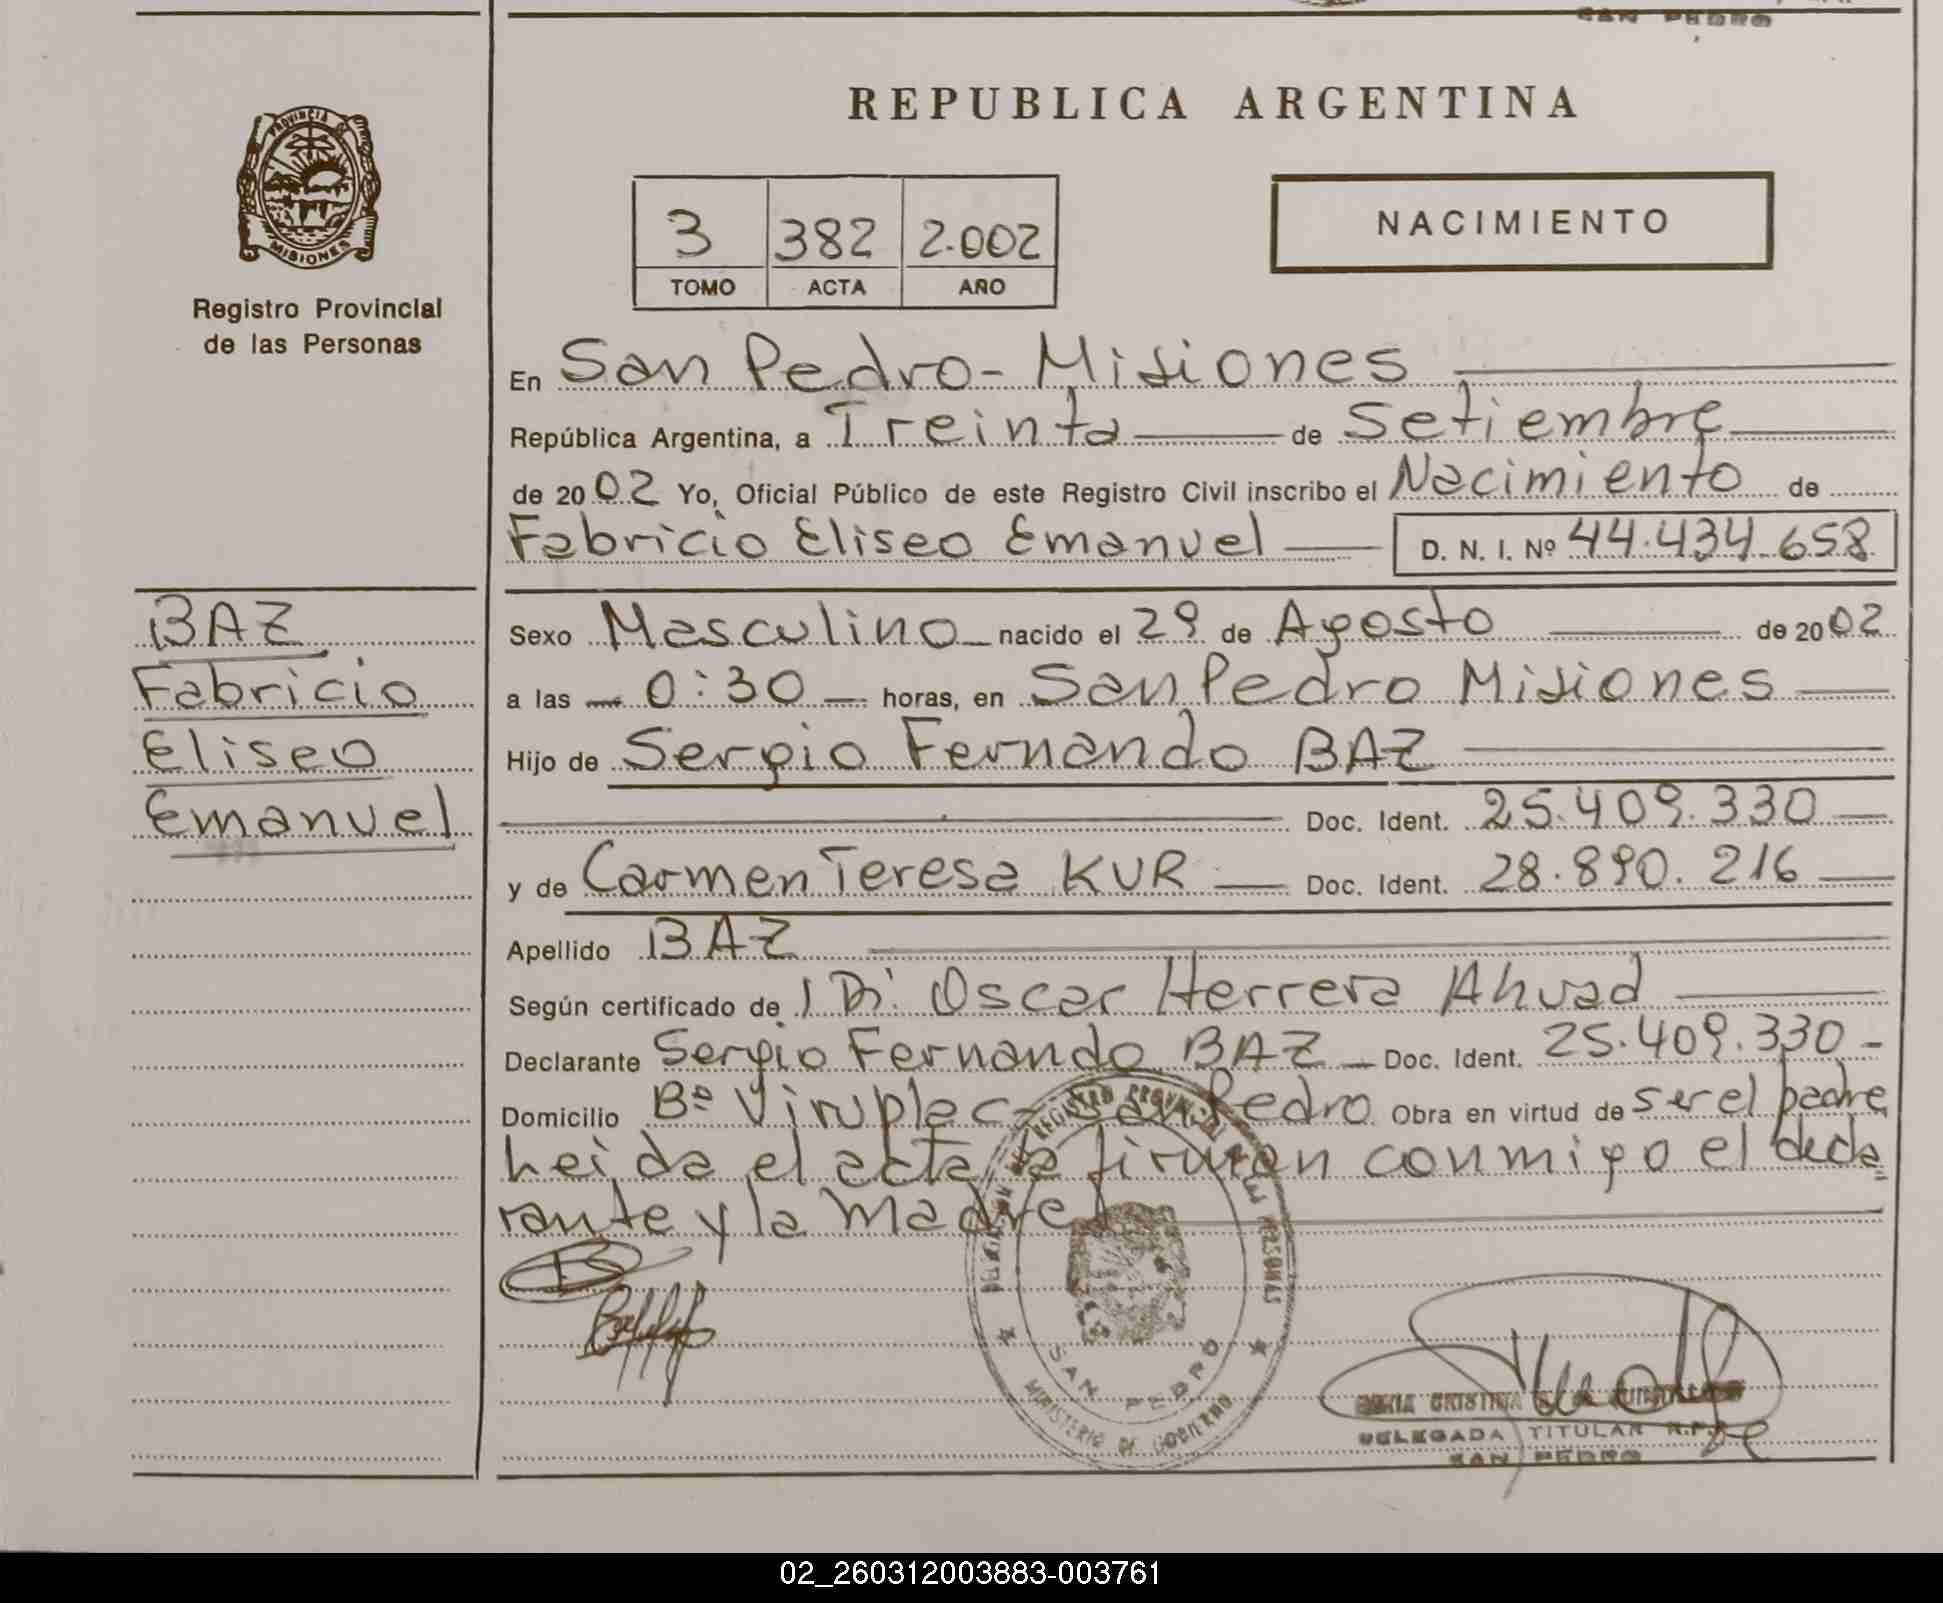 SAN PEDRO
REPUBLICA ARGENTINA
PROVINCIA DE MISIONES
Registro Provincial
de las Personas
3 382 2.002
TOMO ACTA AÑO
NACIMIENTO
En San Pedro - Misiones
República Argentina, a Treinta de Setiembre
de 20 02 Yo, Oficial Público de este Registro Civil inscribo el Nacimiento de
Fabricio Eliseo Emanuel D. N. I. Nº 44.434.658
BAZ
Fabricio
Eliseo
Emanuel
Sexo Masculino nacido el 29 de Agosto de 20 02
a las 0:30 horas, en San Pedro Misiones
Hijo de Sergio Fernando BAZ
Doc. Ident. 25.409.330
y de Carmen Teresa KUR Doc. Ident. 28.890.216
Apellido BAZ
Según certificado de Oscar Herrera Ahuad
Declarante Sergio Fernando BAZ Doc. Ident. 25.409.330
Domicilio Bº San Pedro Obra en virtud de ser el padre
Leida el acta la firman conmigo el decla=
rante y la madre
SAN PEDRO
MINISTERIO DE GOBIERNO
CRISTINA
DELEGADA TITULAR R.P.
SAN PEDRO
02_260312003883-003761